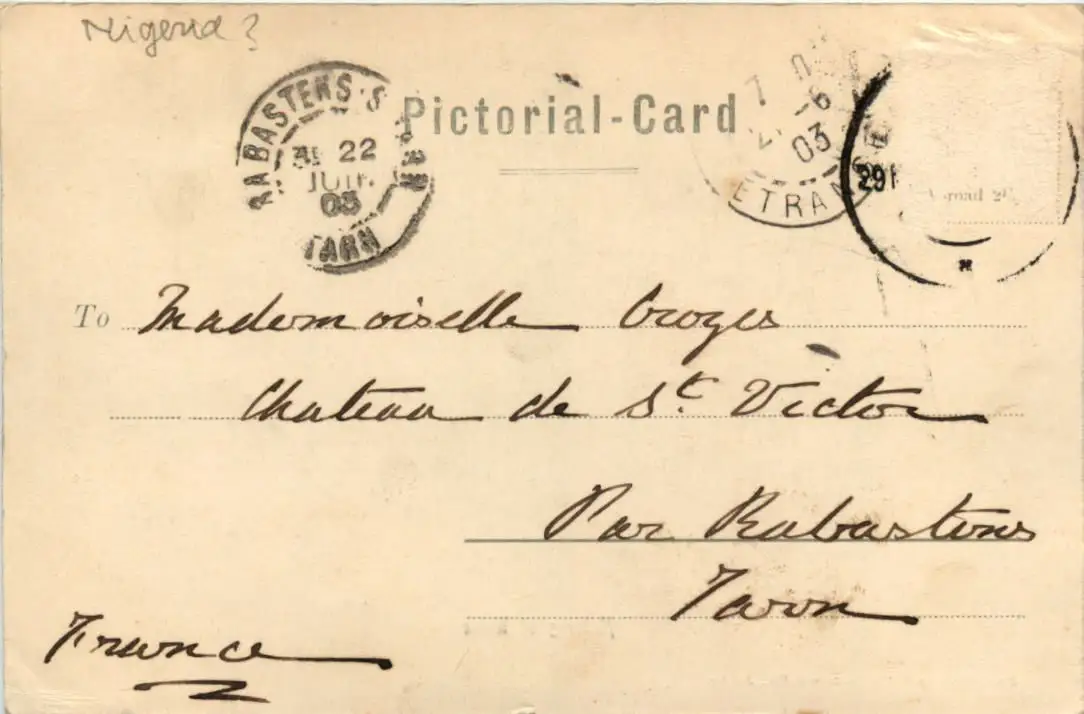 Nigeria?
RABASTENS-S TARN
22
JUIN
03
Pictorial-Card
7
-6
03
ETRANGER
29
road 2
To Mademoiselle Crozes
Chateau de St. Victor
Par Rabastens
Tarn
France